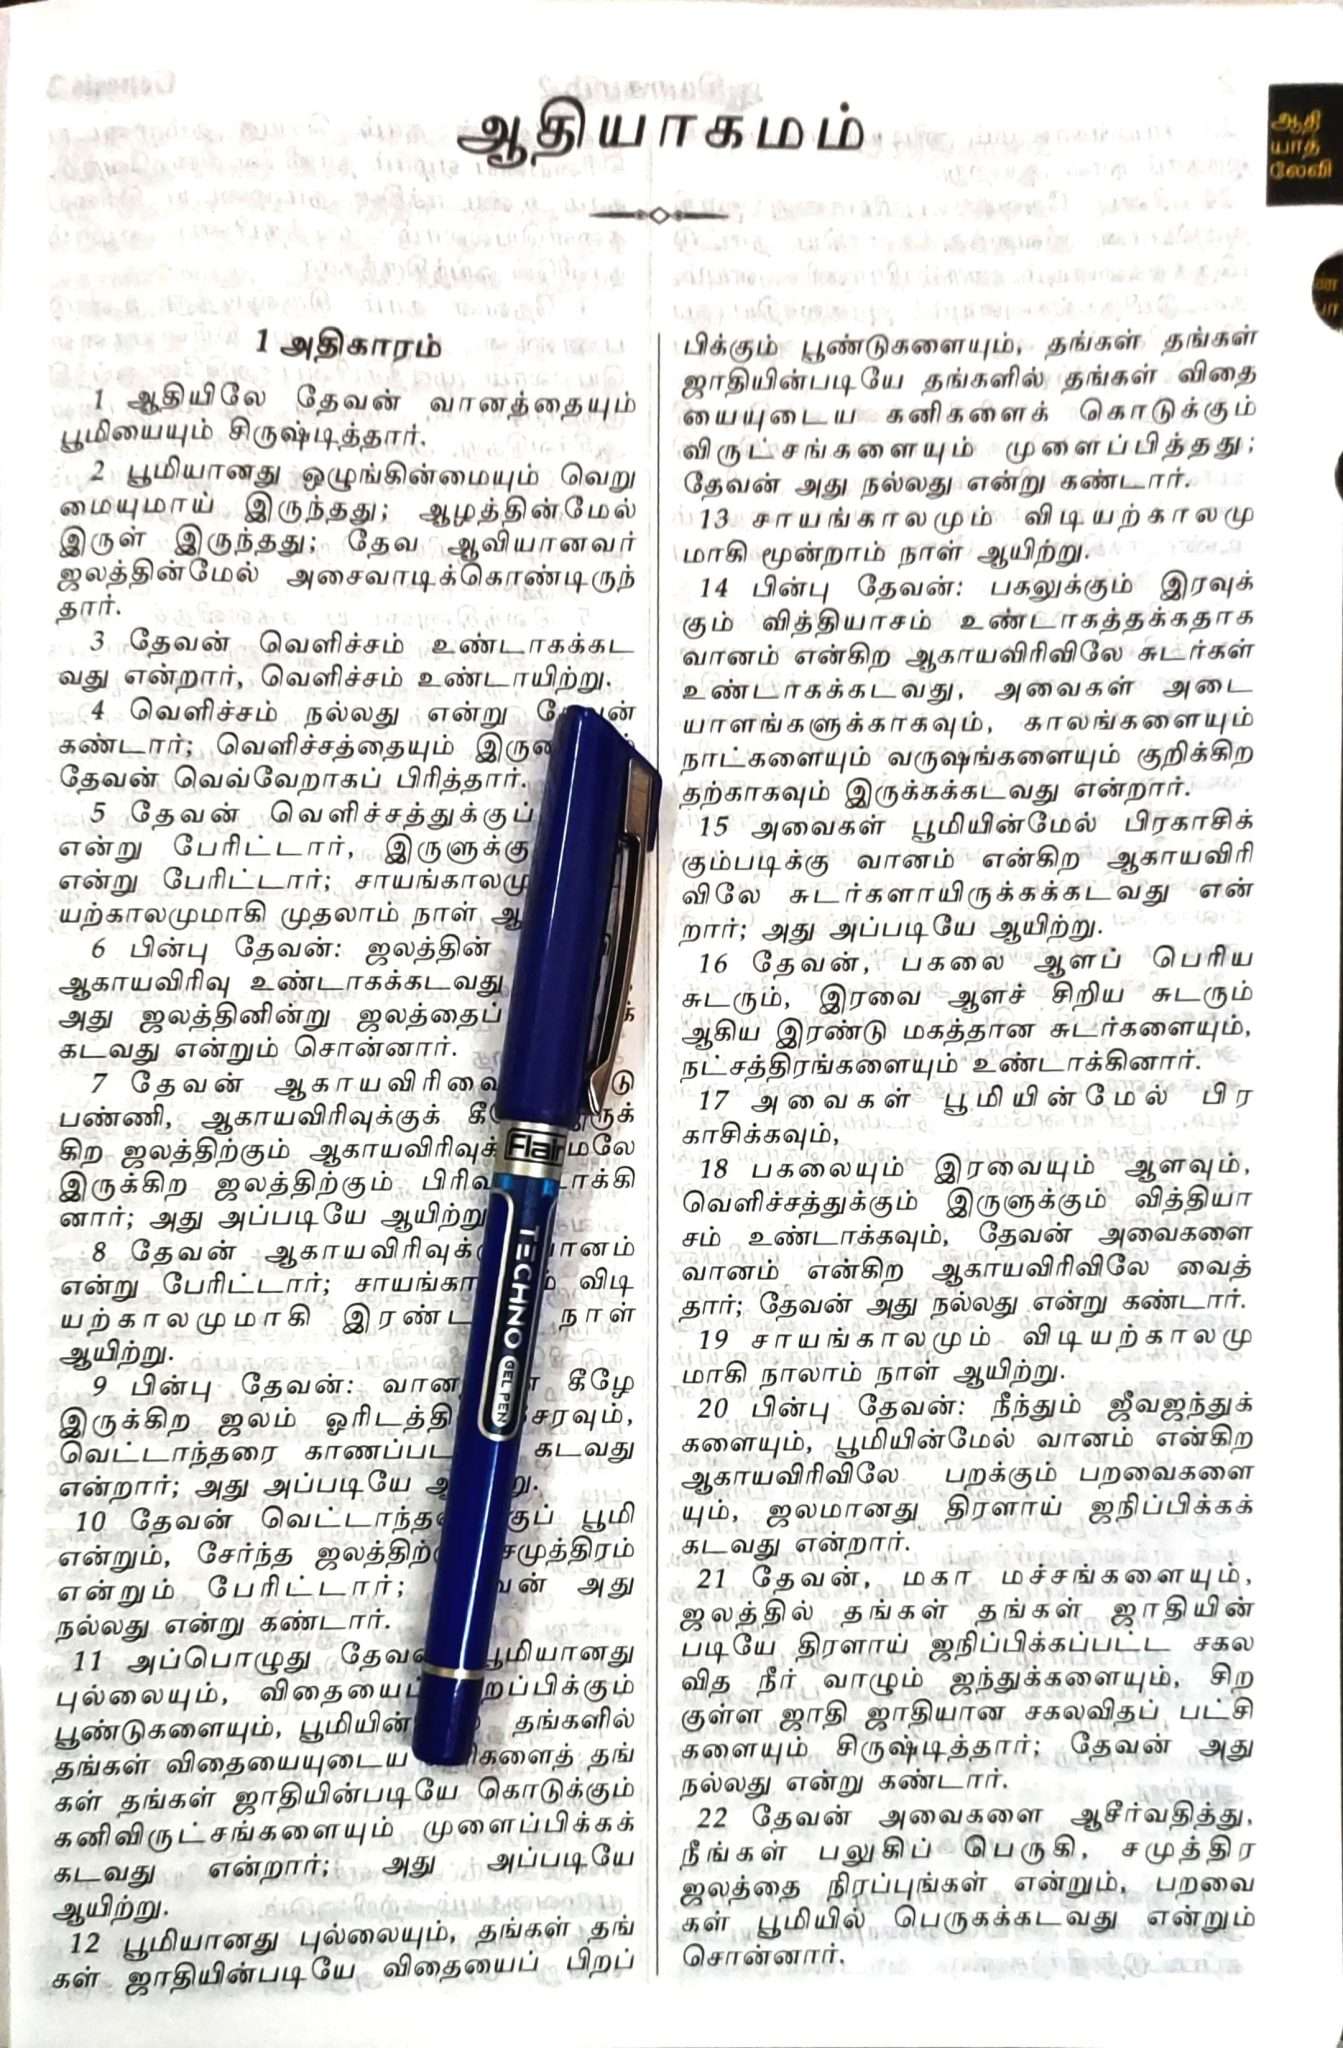 ஆதியாகமம்
ஆதி
யாத்
லேவி
1 அதிகாரம்
1 ஆதியிலே தேவன் வானத்தையும்
பூமியையும் சிருஷ்டித்தார்.
2 பூமியானது ஒழுங்கின்மையும் வெறு
மையுமாய் இருந்தது; ஆழத்தின்மேல்
இருள் இருந்தது; தேவ ஆவியானவர்
ஜலத்தின்மேல் அசைவாடிக்கொண்டிருந்
தார்.
3 தேவன் வெளிச்சம் உண்டாகக்கட
வது என்றார், வெளிச்சம் உண்டாயிற்று.
4 வெளிச்சம் நல்லது என்று தேவன்
கண்டார்; வெளிச்சத்தையும்
தேவன் வெவ்வேறாகப் பிரித்தார்.
5 தேவன் வெளிச்சத்துக்குப்
என்று பேரிட்டார்,
என்று பேரிட்டார்;
யற்காலமுமாகி முதலாம் நாள்
6 பின்பு தேவன்: ஜலத்தின்
ஆகாயவிரிவு உண்டாகக்கடவது
அது ஜலத்தினின்று ஜலத்தைப்
கடவது என்றும் சொன்னார்.
7 தேவன்
பண்ணி, ஆகாயவிரிவுக்குக்
கிற ஜலத்திற்கும்
இருக்கிற ஜலத்திற்கும்
னார்; அது அப்படியே
8 தேவன்
என்று பேரிட்டார்; விடி
யற்காலமுமாகி நாள்
ஆயிற்று.
9 பின்பு தேவன்: கீழே
இருக்கிற ஜலம்
வெட்டாந்தரை கடவது
என்றார்; அது அப்படியே
10 தேவன் பூமி
என்றும், சேர்ந்த சமுத்திரம்
என்றும் பேரிட்டார்; அது
நல்லது என்று கண்டார்.
11 அப்பொழுது பூமியானது
புல்லையும்,
பூண்டுகளையும், தங்களில்
தங்கள் விதையையுடைய தங்
கள் தங்கள் ஜாதியின்படியே கொடுக்கும்
கனிவிருட்சங்களையும் முளைப்பிக்கக்
கடவது என்றார்; அது அப்படியே
ஆயிற்று.
12 பூமியானது புல்லையும், தங்கள் தங்
கள் ஜாதியின்படியே விதையைப் பிறப்
பிக்கும் பூண்டுகளையும், தங்கள் தங்கள்
ஜாதியின்படியே தங்களில் தங்கள் விதை
யையுடைய கனிகளைக் கொடுக்கும்
விருட்சங்களையும் முளைப்பித்தது;
தேவன் அது நல்லது என்று கண்டார்.
13 சாயங்காலமும் விடியற்காலமு
மாகி மூன்றாம் நாள் ஆயிற்று.
14 பின்பு தேவன்: பகலுக்கும் இரவுக்
கும் வித்தியாசம் உண்டாகத்தக்கதாக
வானம் என்கிற ஆகாயவிரிவிலே சுடர்கள்
உண்டாகக்கடவது, அவைகள் அடை
யாளங்களுக்காகவும், காலங்களையும்
நாட்களையும் வருஷங்களையும் குறிக்கிற
தற்காகவும் இருக்கக்கடவது என்றார்.
15 அவைகள் பூமியின்மேல் பிரகாசிக்
கும்படிக்கு வானம் என்கிற ஆகாயவிரி
விலே சுடர்களாயிருக்கக்கடவது என்
றார்; அது அப்படியே ஆயிற்று.
16 தேவன், பகலை ஆளப் பெரிய
சுடரும், இரவை ஆளச் சிறிய சுடரும்
ஆகிய இரண்டு மகத்தான சுடர்களையும்,
நட்சத்திரங்களையும் உண்டாக்கினார்.
17 அவைகள் பூமியின்மேல் பிர
காசிக்கவும்,
18 பகலையும் இரவையும் ஆளவும்,
வெளிச்சத்துக்கும் இருளுக்கும் வித்தியா
சம் உண்டாக்கவும், தேவன் அவைகளை
வானம் என்கிற ஆகாயவிரிவிலே வைத்
தார்; தேவன் அது நல்லது என்று கண்டார்.
19 சாயங்காலமும் விடியற்காலமு
மாகி நாலாம் நாள் ஆயிற்று.
20 பின்பு தேவன்: நீந்தும் ஜீவஜந்துக்
களையும், பூமியின்மேல் வானம் என்கிற
ஆகாயவிரிவிலே பறக்கும் பறவைகளை
யும், ஜலமானது திரளாய் ஜநிப்பிக்கக்
கடவது என்றார்.
21 தேவன், மகா மச்சங்களையும்,
ஜலத்தில் தங்கள் தங்கள் ஜாதியின்
படியே திரளாய் ஜநிப்பிக்கப்பட்ட சகல
வித நீர் வாழும் ஜந்துக்களையும், சிற
குள்ள ஜாதி ஜாதியான சகலவிதப் பட்சி
களையும் சிருஷ்டித்தார்; தேவன் அது
நல்லது என்று கண்டார்.
22 தேவன் அவைகளை ஆசீர்வதித்து,
நீங்கள் பலுகிப் பெருகி, சமுத்திர
ஜலத்தை நிரப்புங்கள் என்றும், பறவை
கள் பூமியில் பெருகக்கடவது என்றும்
சொன்னார்.
Flair
TECHNO GEL PEN